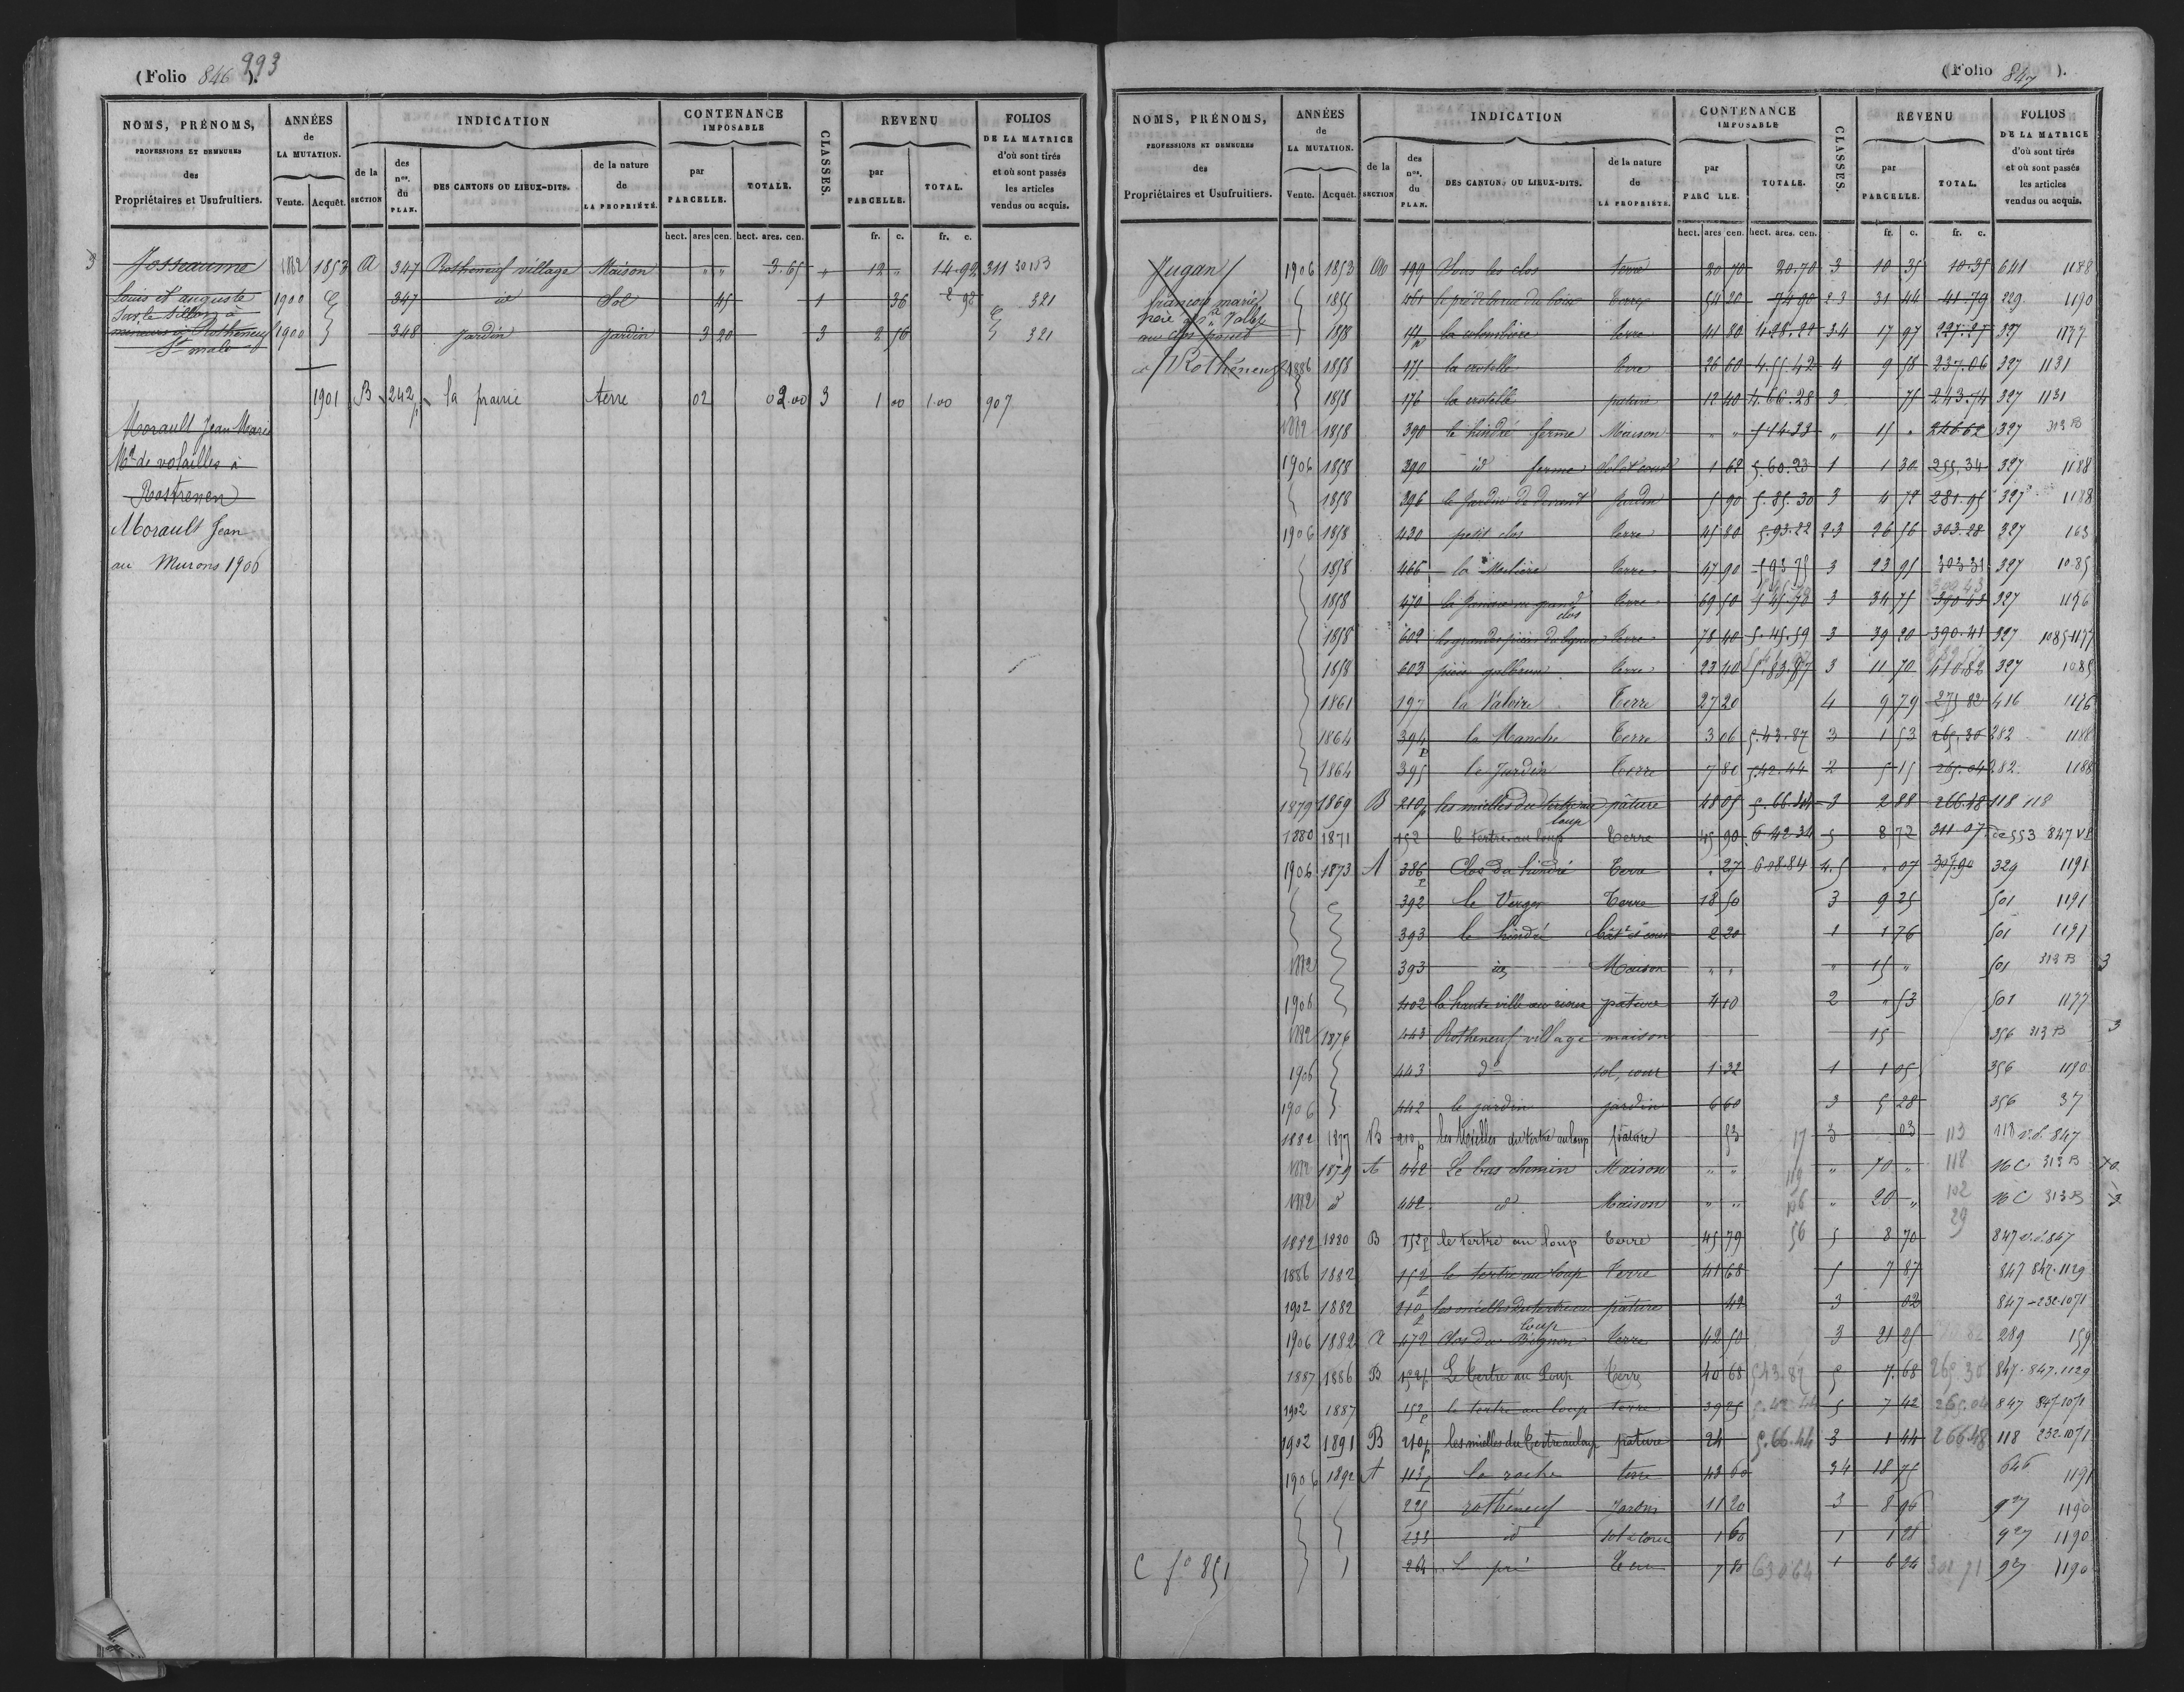 (Folio 846).
993
NOMS, PRÉNOMS,
PROFESSIONS ET DEMEURES
des
Propriétaires et Usufruitiers.
ANNÉES
de
LA MUTATION.
Vente. Acquêt.
INDICATION
de la
SECTION
des
nos.
du
PLAN.
DES CANTONS OU LIEUX-DITS.
de la nature
de
LA PROPRIÉTÉ.
CONTENANCE
IMPOSABLE
par
PARCELLE.
TOTALE.
hect. ares cen. hect. ares. cen.
CLASSES.
REVENU
par
PARCELLE.
TOTAL.
fr. c. fr. c.
FOLIOS
DE LA MATRICE
d'où sont tirés
et où sont passés
les articles
vendus ou acquis.
3 Josseaume 1882 1853 A 347 Rotheneuf village Maison " " 3.65 + 12 " 14.92 311
Louis et auguste 1900 347 id Sol 45 1 36 2 92 321
Sur le Sillon à
mineurs à Rotheneuf 1900 348 Jardin Jardin 3 20 3 2 56 321
St malo
1901 B 242 p la prairie terre 02 02.00 3 1 00 1.00 907
Morault Jean Marie
Md de volailles à
Rostrenen
Morault Jean
au Murons 1906
(Folio 847).
NOMS, PRÉNOMS,
PROFESSIONS ET DEMEURES
des
Propriétaires et Usufruitiers.
ANNÉES
de
LA MUTATION.
Vente. Acquêt.
INDICATION
de la
SECTION
des
nos.
du
PLAN.
DES CANTONS OU LIEUX-DITS.
de la nature
du
LA PROPRIÉTÉ.
CONTENANCE
IMPOSABLE
par
PARC LLE.
TOTALE.
hect. ares cen. hect. ares. cen.
CLASSES.
REVENU
par
PARCELLE.
TOTAL.
fr. c. fr. c.
FOLIOS
DE LA MATRICE
d'où sont tirés
et où sont passés
les articles
vendus ou acquis.
Jugan 1906 1853 199 Sous les clos terre 20 70 20.70 3 10 35 10.35 641 1188
françois marie 1855 461 terre 54 20 74 90 2 3 31 44 41.79 229 1190
père
1858 la colombière terre 41 80 3.4 17 97 327 1177
à Rothéneuf 1886 1858 175 la crotelle terre 26 60 4.55.42 4 9 58 237.06 327 1131
1858 176 la crotelle pature 12 40 4.66.28 3 75 243.74 327 1131
1882 1858 390 le hindré ferme Maison " " 5 14.33 " 15 " 246.62 327 313 B
1906 1858 390 id ferme Sol et cour 1 62 5.60.23 1 1 30 255.34 327 1188
1858 396 le Jardin de devant Jardin 5 90 5.85.30 3 4 72 281.95 327 1188
1906 1858 430 petit clos terre 45 80 5.93.22 2.3 26 56 303.28 327 163
1858 466 terre 47 90 3 23 95 303.31 327 1085
1858 470 clos terre 69 50 3 34 75 390 43 327 1176
1858 602 terre 78 40 5.45.59 3 39 20 390.41 327 1085-1177
1858 603 terre 23 40 5.83.87 3 11 70 410.82 327 1085
1861 197 la Valoire Terre 27 20 4 9 79 275 82 416 1176
1864 394 p la Manche Terre 3 06 5.43.87 3 1 53 265.30 282 1188
1864 395 le Jardin terre 7 80 5.42.44 2 5 15 265.04 282 1188
1879 1869 B 210 p les mielles du tertre au loup pâture 48 05 5.66.44 3 2 88 266.48 118 118
1880 1871 152 le tertre au loup Terre 45 90 6 42.34 5 8 72 311 07 de 553 847 VP
1906 1873 A 386 p Clos du hindré Terre " 27 608.84 4.5 " 07 305.90 329 1191
392 le Verger Terre 18 50 3 9 25 501 1191
393 le hindré bât et cour 2 20 1 1 76 501 1191
1882 393 id Maison " " " 15 " 501 313 B 3
1906 402 la haute ville pâture 4 10 2 " 53 501 1177
1882 1876 443 Rotheneuf village maison 15 356 313 B 3
1906 443 do sol, cour 1 32 1 1 05 356 1190
1906 442 le jardin jardin 6 60 3 5 28 356 37
1882 1877 B 210 p les Mielles du tertre au loup pature 53 17 3 03 113 118 v.d. 847
1882 1879 A 442 Le bas chemin Maison " " 119 " 70 " 118 16 C 313 B 70
1882 id 442 id Maison " " 106 " 20 " 102 16 C 313 B
1882 1880 B 152 p le tertre au loup Terre 45 79 56 5 8 70 29 847 v.d. 847
1886 1882 152 p le tertre au loup Terre 41 68 5 7 87 847 847.1129
1902 1882 210 p les mielles du tertre au loup pâture 42 3 02 847-232-1071
1906 1882 A 472 Clos du Bignon terre 42 50 3 21 25 289 159
1887 1886 B 152 p Le tertre au Loup Terre 40 68 543.87 5 7.68 265.30 847-847.1129
1902 1887 152 p le tertre au loup terre 39 25 5.42 44 5 7 42 265.04 847 847-1071
1902 1891 B 210 p les mielles du tertre au loup pature 24 5.66.44 3 1 44 266.48 118 232-1071
1906 1892 A 113 p la roche terre 43 60 3 4 18 75 646 1191
225 rothéneuf Jardin 11 20 3 8 96 927 1190
233 id sol et cour 1 60 1 1 28 927 1190
C fo 851 264 Le pré Terre 7 80 630 64 1 6 24 927 1190